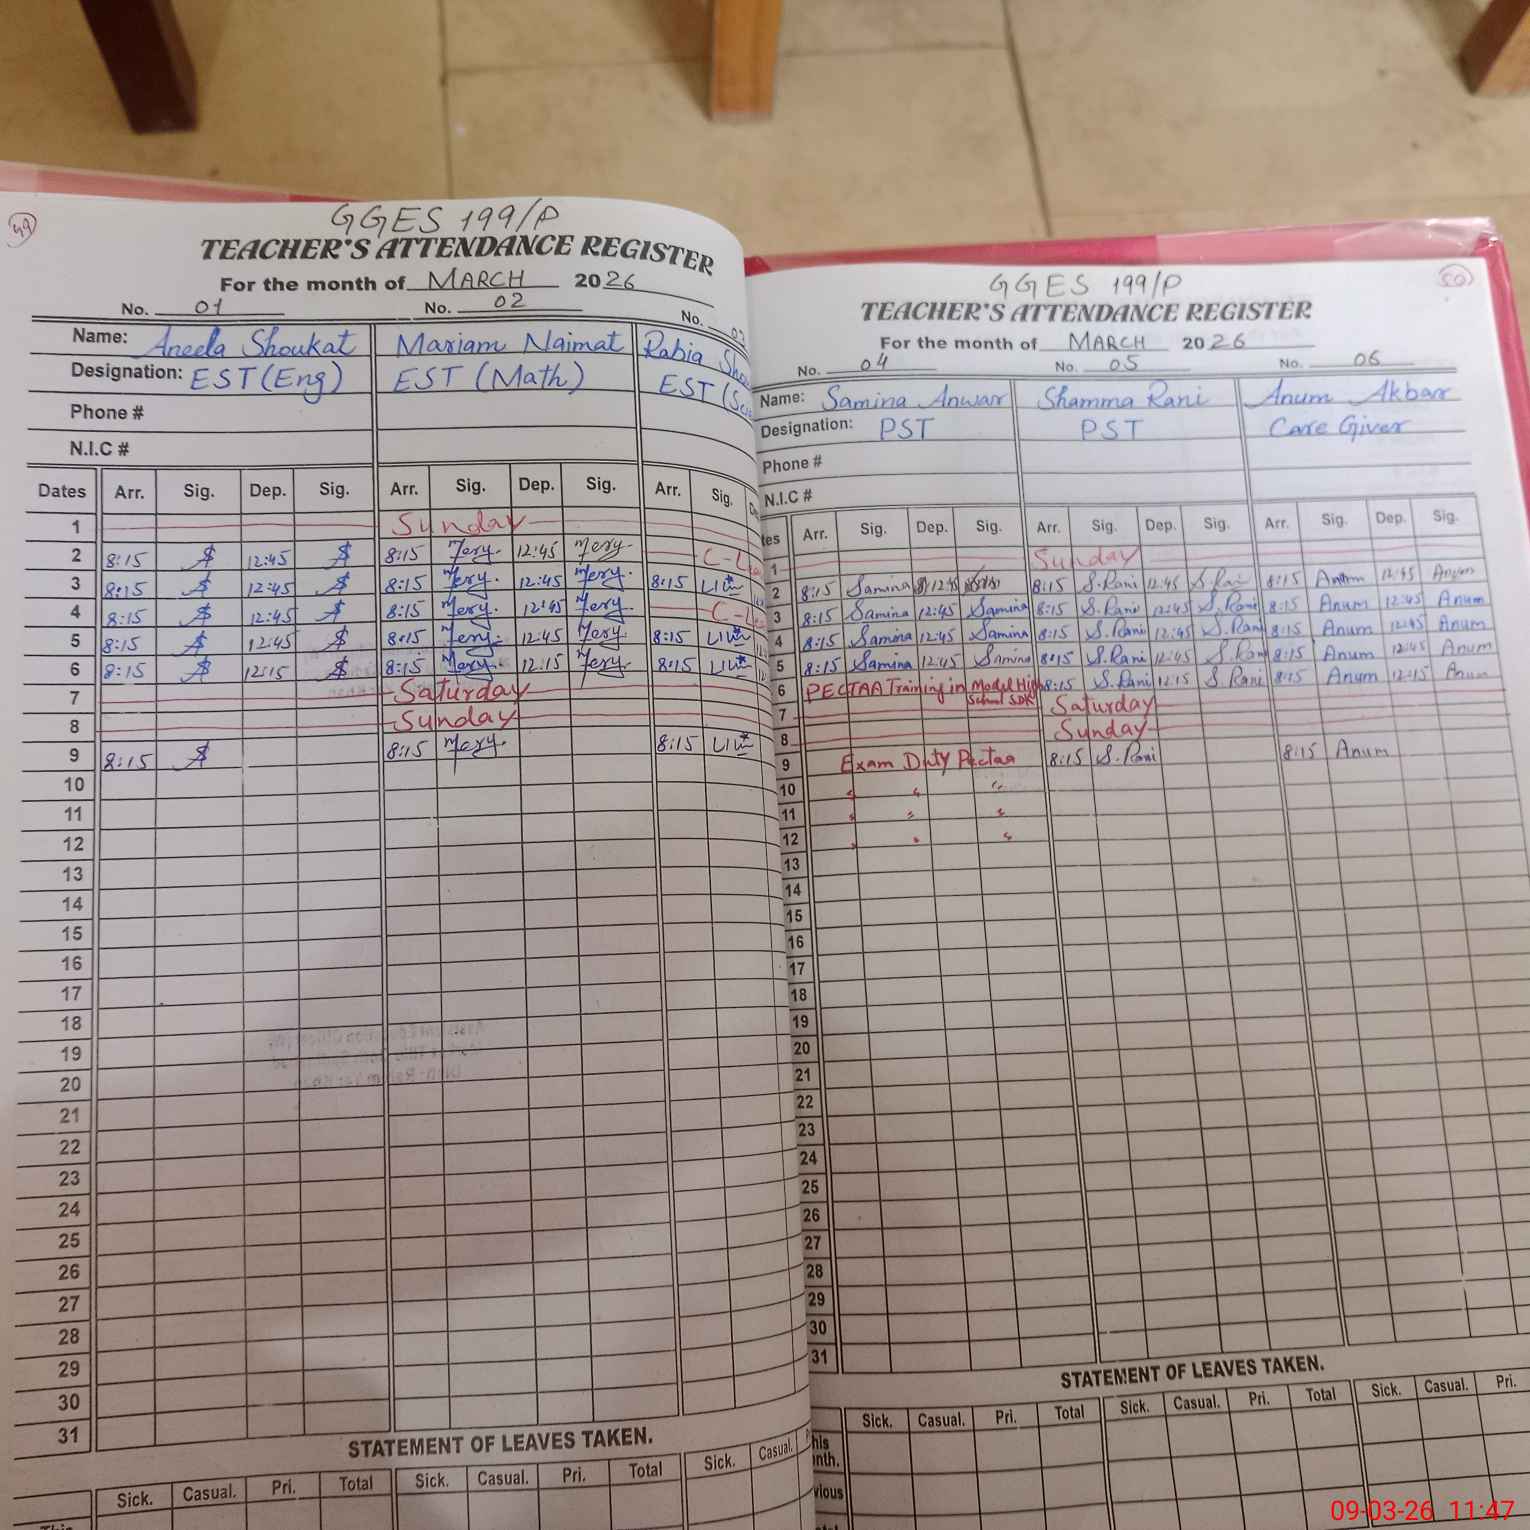 49
GGES 199/P
TEACHER'S ATTENDANCE REGISTER
For the month of MARCH 2026
No. 01 No. 02 No. 03
Name: Aneela Shoukat Mariam Naimat Rabia
Designation: EST (Eng) EST (Math) EST
Phone #
N.I.C #
Dates Arr. Sig. Dep. Sig. Arr. Sig. Dep. Sig. Arr. Sig.
1 Sunday
2 8:15 12:45 8:15 Mery. 12:45 Mery.
3 8:15 12:45 8:15 Mery. 12:45 Mery. 8:15
4 8:15 12:45 8:15 Mery. 12:45 Mery.
5 8:15 12:45 8:15 Mery. 12:45 Mery. 8:15
6 8:15 12:15 8:15 Mery. 12:15 Mery. 8:15
7 Saturday
8 Sunday
9 8:15 8:15 Mery. 8:15
10
11
12
13
14
15
16
17
18
19
20
21
22
23
24
25
26
27
28
29
30
31
STATEMENT OF LEAVES TAKEN.
Sick. Casual. Pri. Total Sick. Casual. Pri. Total Sick. Casual.
50
GGES 199/P
TEACHER'S ATTENDANCE REGISTER
For the month of MARCH 2026
No. 04 No. 05 No. 06
Name: Samina Anwar Shamma Rani Anum Akbar
Designation: PST PST Care Giver
Phone #
N.I.C #
tes Arr. Sig. Dep. Sig. Arr. Sig. Dep. Sig. Arr. Sig. Dep. Sig.
1 Sunday
2 8:15 Samina 12:45 8:15 S.Rani 12:45 S.Rani 8:15 Anum 12:45 Anum
3 8:15 Samina 12:45 Samina 8:15 S.Rani 12:45 S.Rani 8:15 Anum 12:45 Anum
4 8:15 Samina 12:45 Samina 8:15 S.Rani 12:45 S.Rani 8:15 Anum 12:45 Anum
5 8:15 Samina 12:45 Samina 8:15 S.Rani 12:45 S.Rani 8:15 Anum 12:45 Anum
6 PECTAA Training in Model High School SDK 8:15 S.Rani 12:15 S.Rani 8:15 Anum 12:15 Anum
7 Saturday
8 Sunday
9 Exam Duty Pectaa 8:15 S.Rani 8:15 Anum
10 " " "
11 " " "
12 " " "
13
14
15
16
17
18
19
20
21
22
23
24
25
26
27
28
29
30
31
STATEMENT OF LEAVES TAKEN.
Sick. Casual. Pri. Total Sick. Casual. Pri. Total Sick. Casual. Pri.
09-03-26 11:47